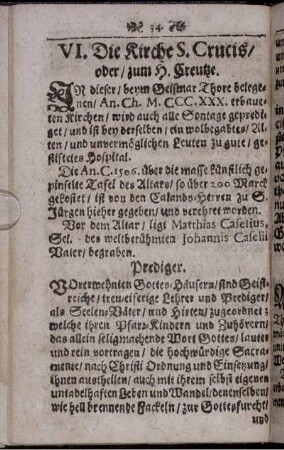 34.
VI. Die Kirche S. Crucis/
oder/ zum H. Creutze.
IN dieser/ beym Geismar Thore belege-
nen/ An. Ch. M. CCC. XXX. erbaue-
ten Kirchen/ wird auch alle Sontage gepredi-
get/ und ist bey derselben/ ein wolbegabtes/ Al-
ten/ und unvermöglichen Leuten zu gute/ ge-
stifftetes Hospital.
Die An. C. 1506. über die masse künstlich ge-
pinselte Tafel des Altars/ so über 200 Marck
gekostet/ ist von den Calands-Herren zu S.
Jürgen hieher gegeben/ und verehret worden.
Vor dem Altar/ ligt Matthias Caselius,
Sel. des weltberühmten Johannis Caselii
Vater/ begraben.
Prediger.
VOrerwehnten Gottes-Häusern/ sind Geist-
reiche/ treu-eiferige Lehrer und Prediger/
als Seelen-Väter/ und Hirten/ zugeordnet/
welche ihren Pfar-Kindern und Zuhörern/
das allein seligmachende Wort Gottes/ lauter
und rein vortragen/ die hochwürdige Sacra-
mente/ nach Christi Ordnung und Einsetzung/
ihnen austheilen/ auch mit ihrem selbst eigenen
untadelhaften Leben und Wandel/ denenselben/
wie hell brennende Fackeln/ zur Gottsfurcht/
und